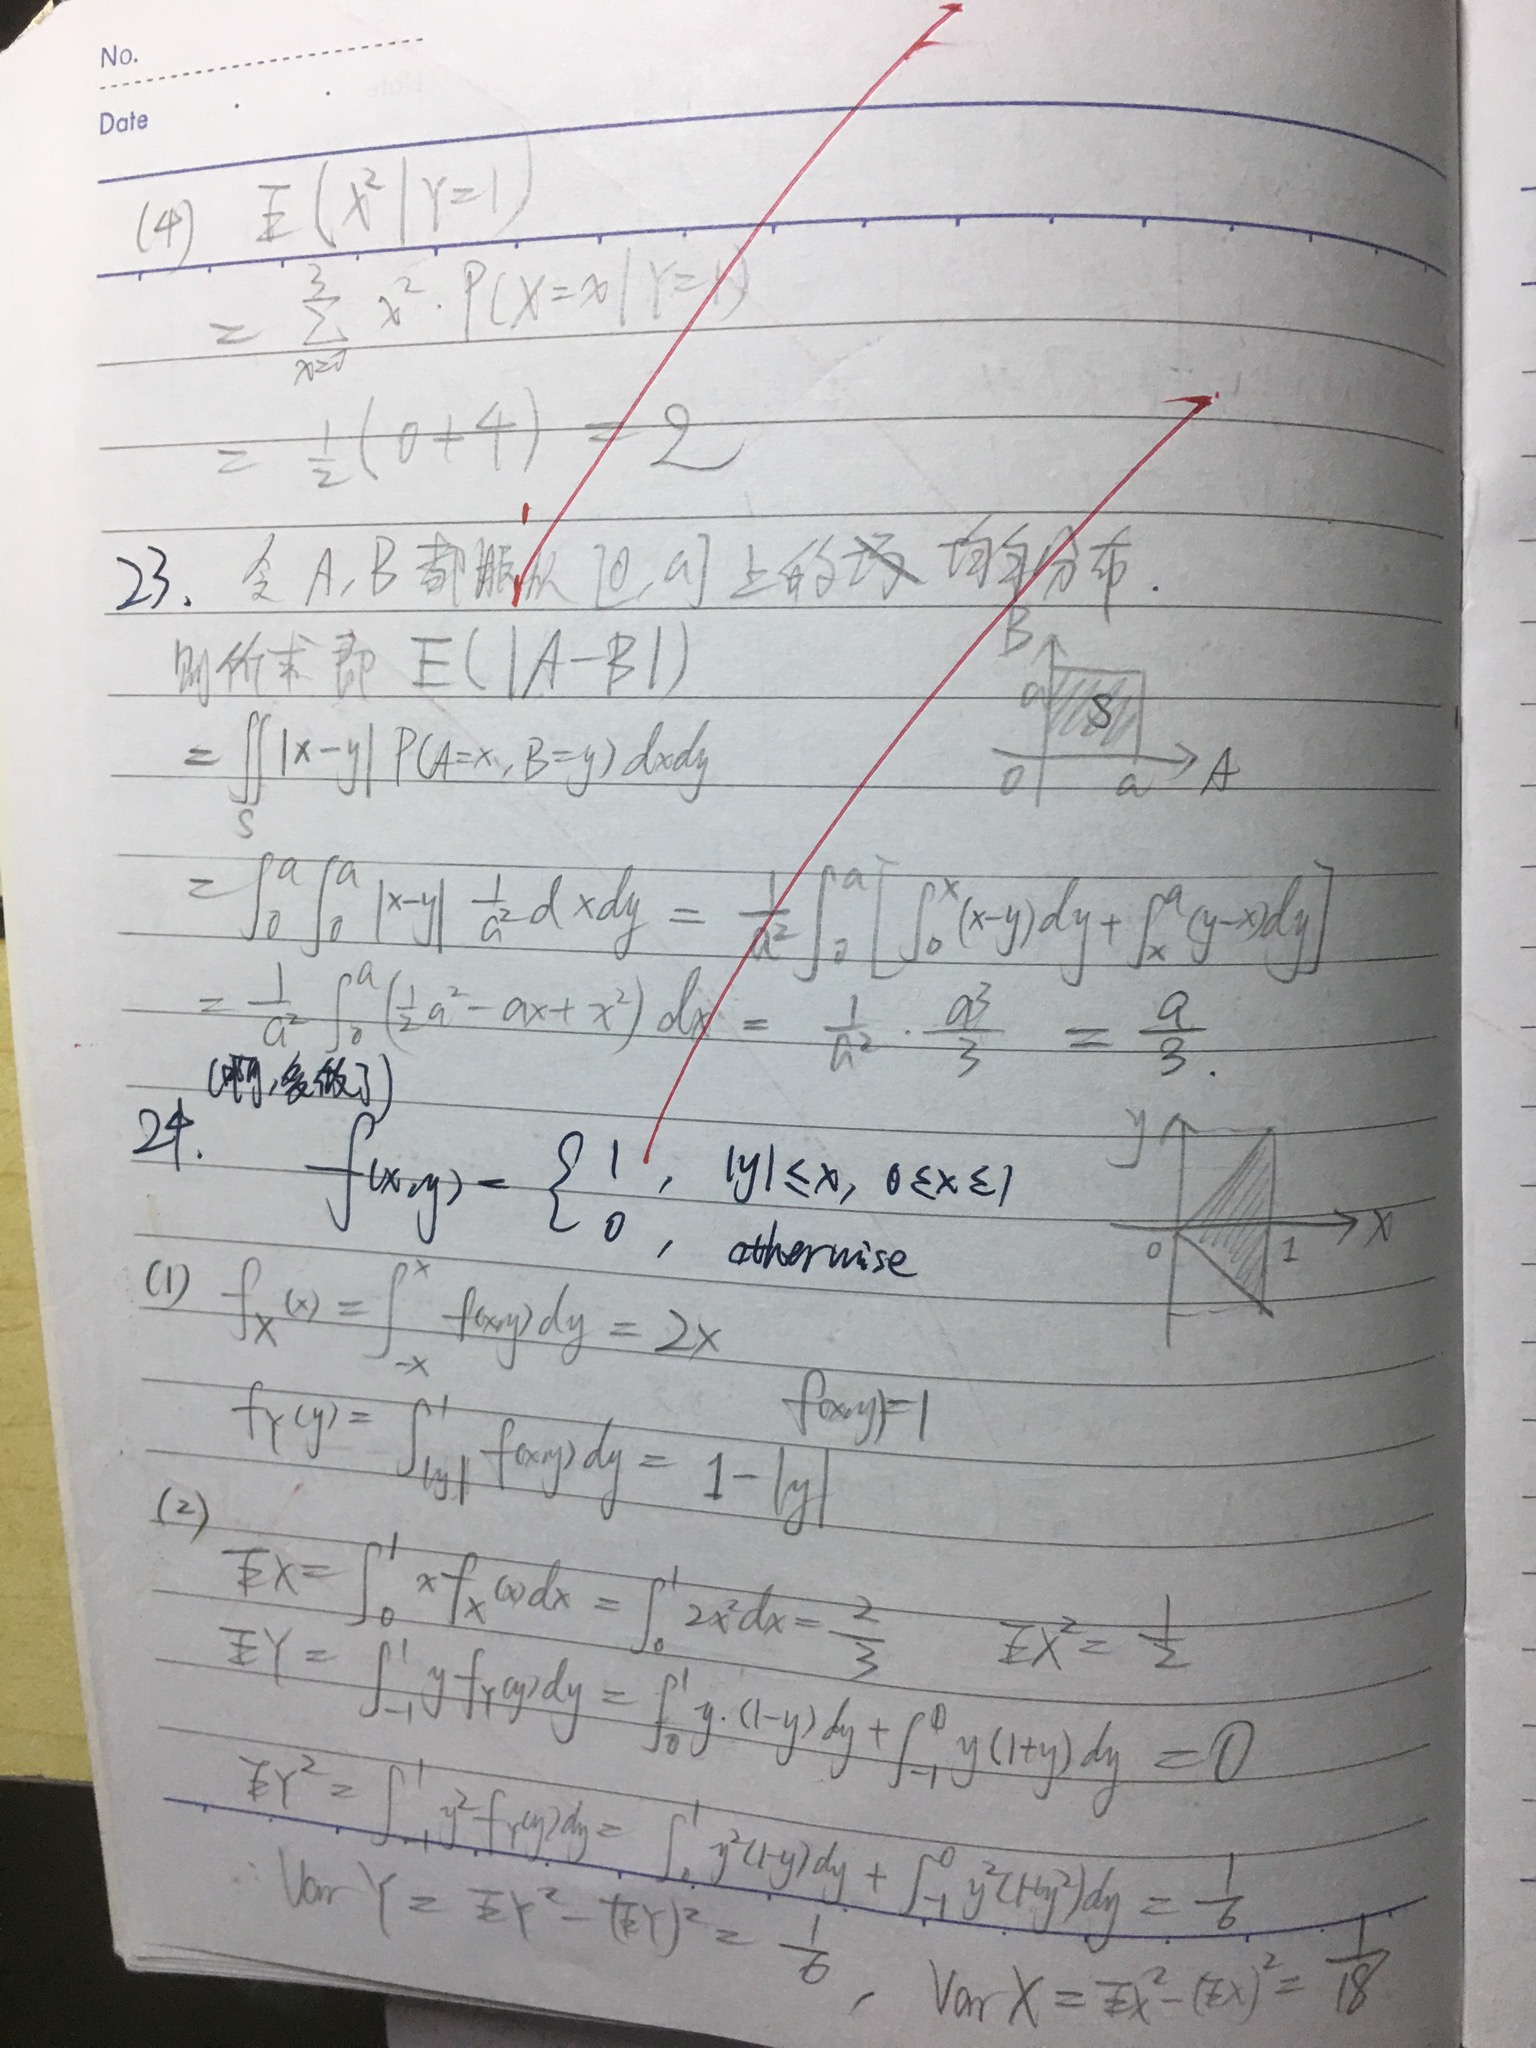 No.
Date
(4) E(X²|Y=1)
= ∑_{x=0}^{3} x²·P(X=x|Y=1)
= 1/2(0+4) = 2
23. 令A,B都服从[0,a]上的 均匀分布.
则所求即 E(|A-B|)
= ∬_S |x-y| P(A=x, B=y) dxdy
B
a
S
0 a A
= ∫_0^a ∫_0^a |x-y| 1/a² dxdy = 1/a² ∫_0^a [∫_0^x (x-y)dy + ∫_x^a (y-x)dy]
= 1/a² ∫_0^a (1/2 a² - ax + x²) dx = 1/a² · a³/3 = a/3.
(啊,多做了)
24. f(x,y) = { 1, |y|≤x, 0≤x≤1
0, otherwise
y
0 1 X
(1) f_X(x) = ∫_{-x}^{x} f(x,y)dy = 2x
f(x,y)=1
f_Y(y) = ∫_{|y|}^{1} f(x,y)dy = 1-|y|
(2)
EX = ∫_0^1 x f_X(x)dx = ∫_0^1 2x²dx = 2/3 EX² = 1/2
EY = ∫_{-1}^1 y f_Y(y)dy = ∫_0^1 y·(1-y)dy + ∫_{-1}^0 y(1+y)dy = 0
EY² = ∫_{-1}^1 y² f_Y(y)dy = ∫_0^1 y²(1-y)dy + ∫_{-1}^0 y²(1+y²)dy = 1/6
∴ Var Y = EY² - (EY)² = 1/6, Var X = EX² - (EX)² = 1/18